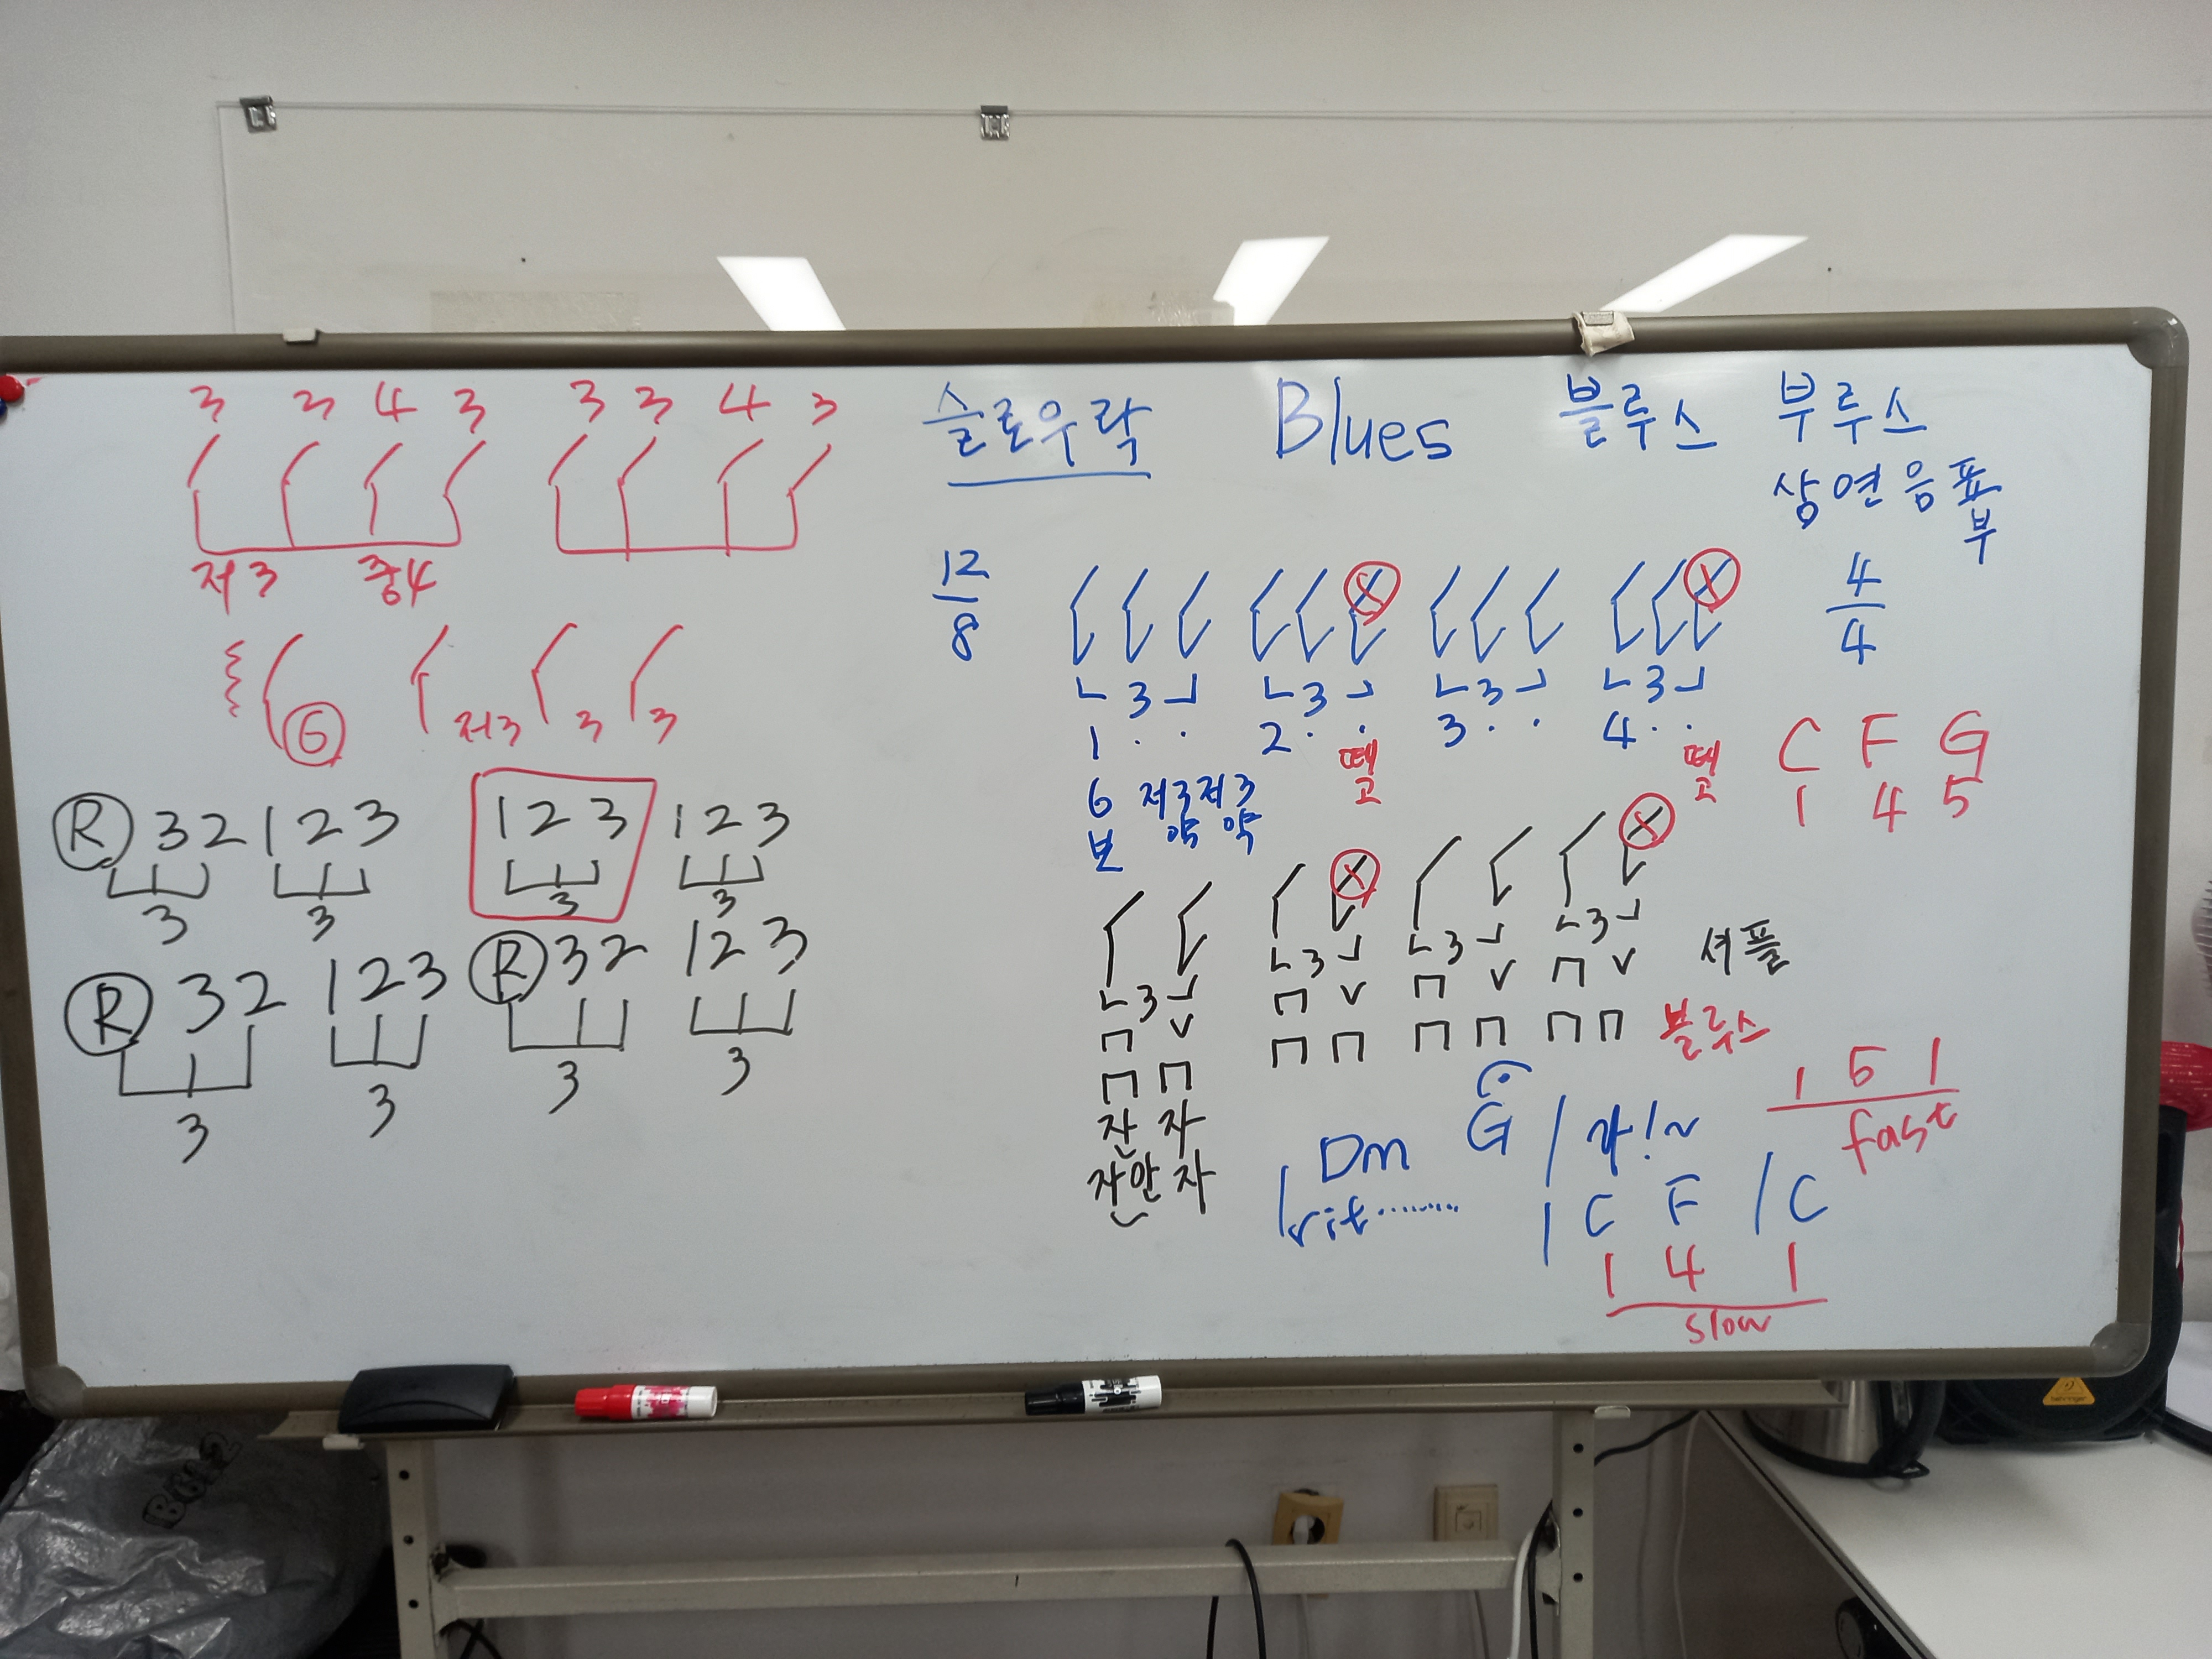 3 3 4 3 3 3 4 3
저3 중4
G 저3 3 3
R 3 2 1 2 3 1 2 3 1 2 3
3 3 3 3
R 3 2 1 2 3 R 3 2 1 2 3
3 3 3 3
슬로우락 Blues 블루스 부루스
삼연음표
부
12/8 4/4
3 3 3 3
1 · · 2 · · 3 · · 4 · ·
떼고 떼고
6 저3저3
보 약 약
C F G
1 4 5
3 3 3 3 셔플
ㄇ V ㄇ V ㄇ V ㄇ V
ㄇ ㄇ ㄇ ㄇ ㄇ ㄇ ㄇ ㄇ 블루스
잔 자
자안 자
Dm G / 꽈!~
rit.........
| C F / C
1 4 1
slow
1 5 1
fast
BG12
behringer